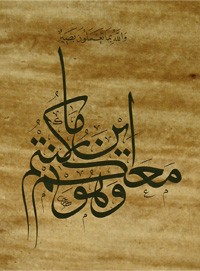 والله بما تعملون بصير
وهو معكم أين ما كنتم